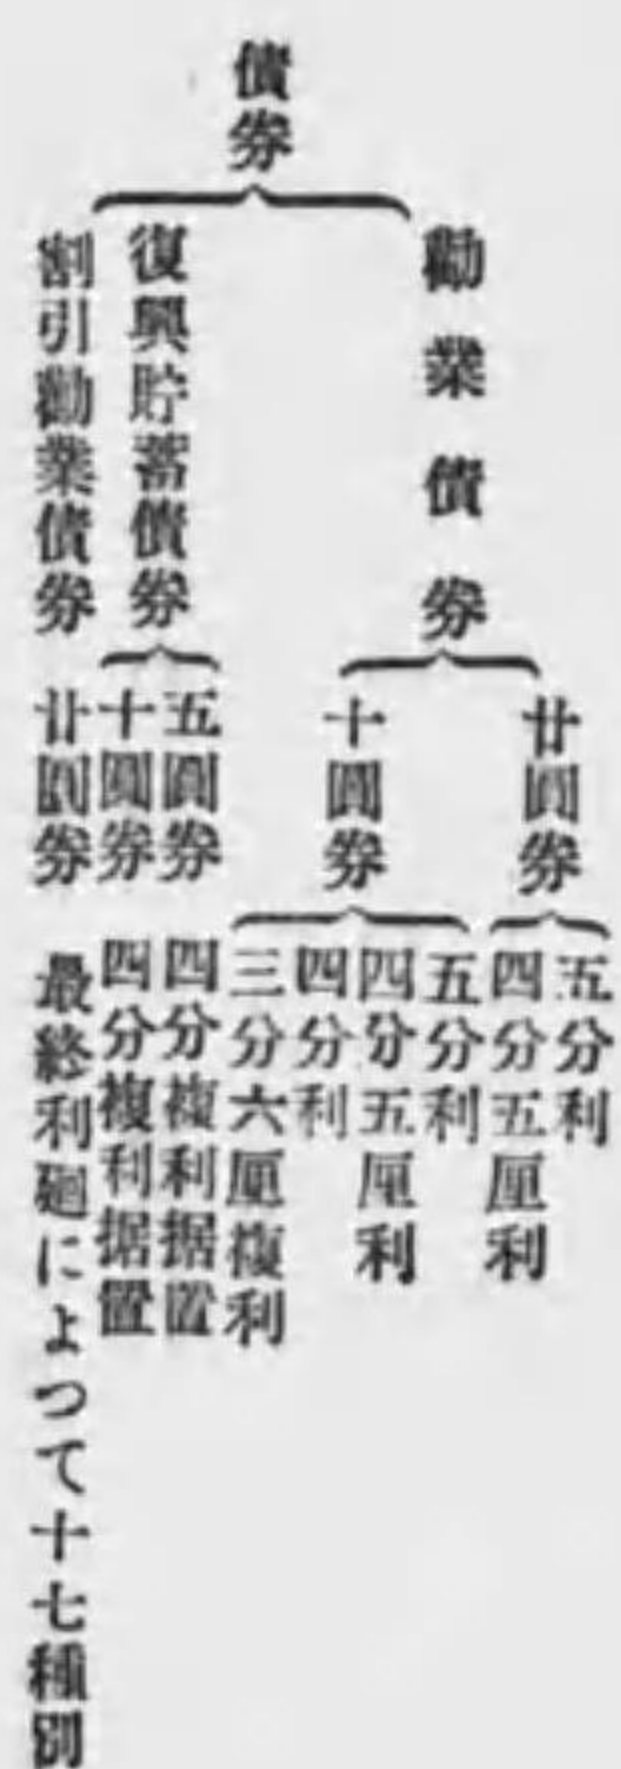 債券
勸業債券
廿圓券
五分利
四分五厘利
十圓券
五分利
四分五厘利
四分利
三分六厘複利
復興貯蓄債券
五圓券
四分複利据置
十圓券
四分複利据置
割引勸業債券
廿圓券
最終利廻によつて十七種別